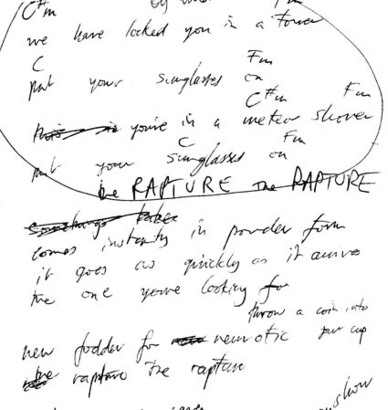 C#m Fm
we have locked you in a tower
C Fm
put your sunglasses on
C#m Fm
you're in a meteor shower
C Fm
put your sunglasses on
the RAPTURE the RAPTURE
comes instantly in powder form
it goes as quickly as it arrives
the one youre looking for
throw a coin into
new fodder for neurotic your cup
the rapture the rapture
show